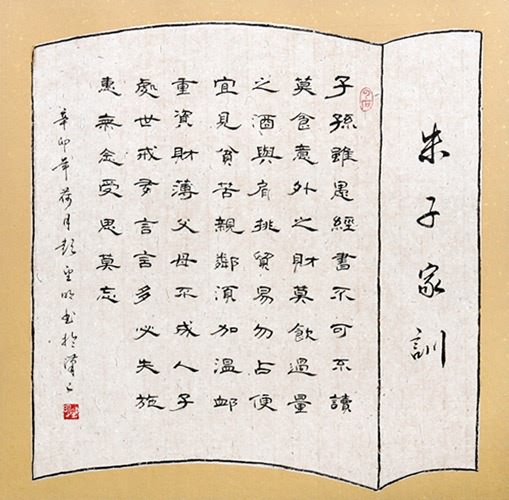 朱子家訓
子孫雖愚經書不可不讀
莫貪意外之財莫飲過量
之酒與肩挑貿易勿占便
宜見貧苦親鄰須加溫卹
重資財薄父母不成人子
處世戒多言言多必失施
惠無念受恩莫忘
辛卯年荷月彭明書於